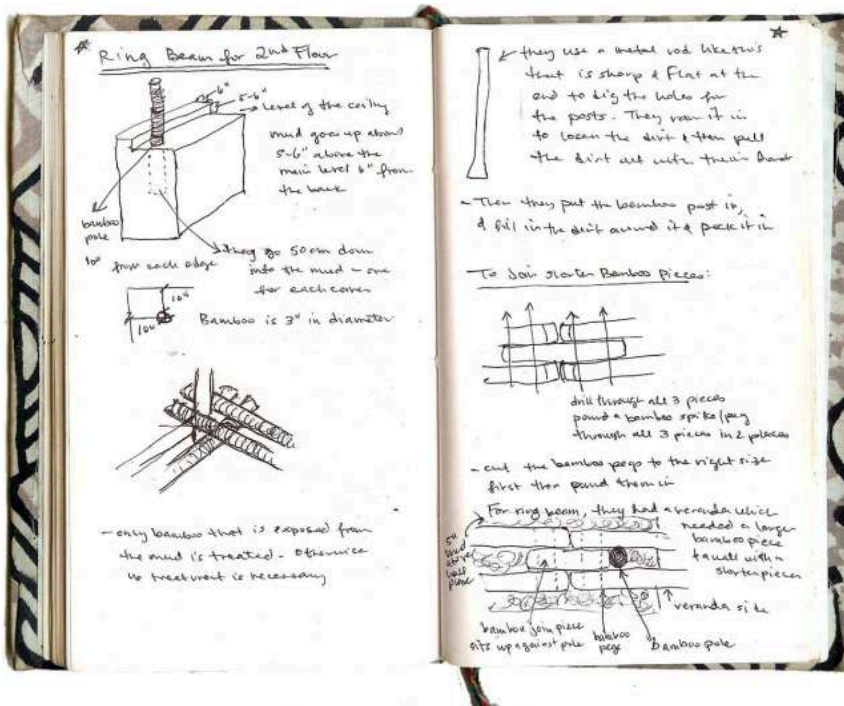 Ring Beam for 2nd Floor
6"
5-6"
Level of the ceiling
mud goes up about
5-6" above the
main level 6" from
the back
bamboo
pole
10" from each edge
they go 50cm down
into the mud - one
for each corner
10"
10"
Bamboo is 3" in diameter
- only bamboo that is exposed from
the mud is treated - Otherwise
no treatment is necessary
they use a metal rod like this
that is sharp & flat at the
end to dig the holes for
the posts. They ram it in
to loosen the dirt & then pull
the dirt out with their hands
- Then they put the bamboo post in,
& fill in the dirt around it & pack it in
To Join shorter Bamboo pieces:
drill through all 3 pieces
pound a bamboo spike/peg
through all 3 pieces in 2 places
- cut the bamboo pegs to the right size
first then pound them in
For ring beam, they had a veranda which
needed a longer
bamboo piece
& a wall with a
shorter pieces
5"
mud
above
wall
veranda side
bamboo join piece
sits up against pole
bamboo
pegs
bamboo pole